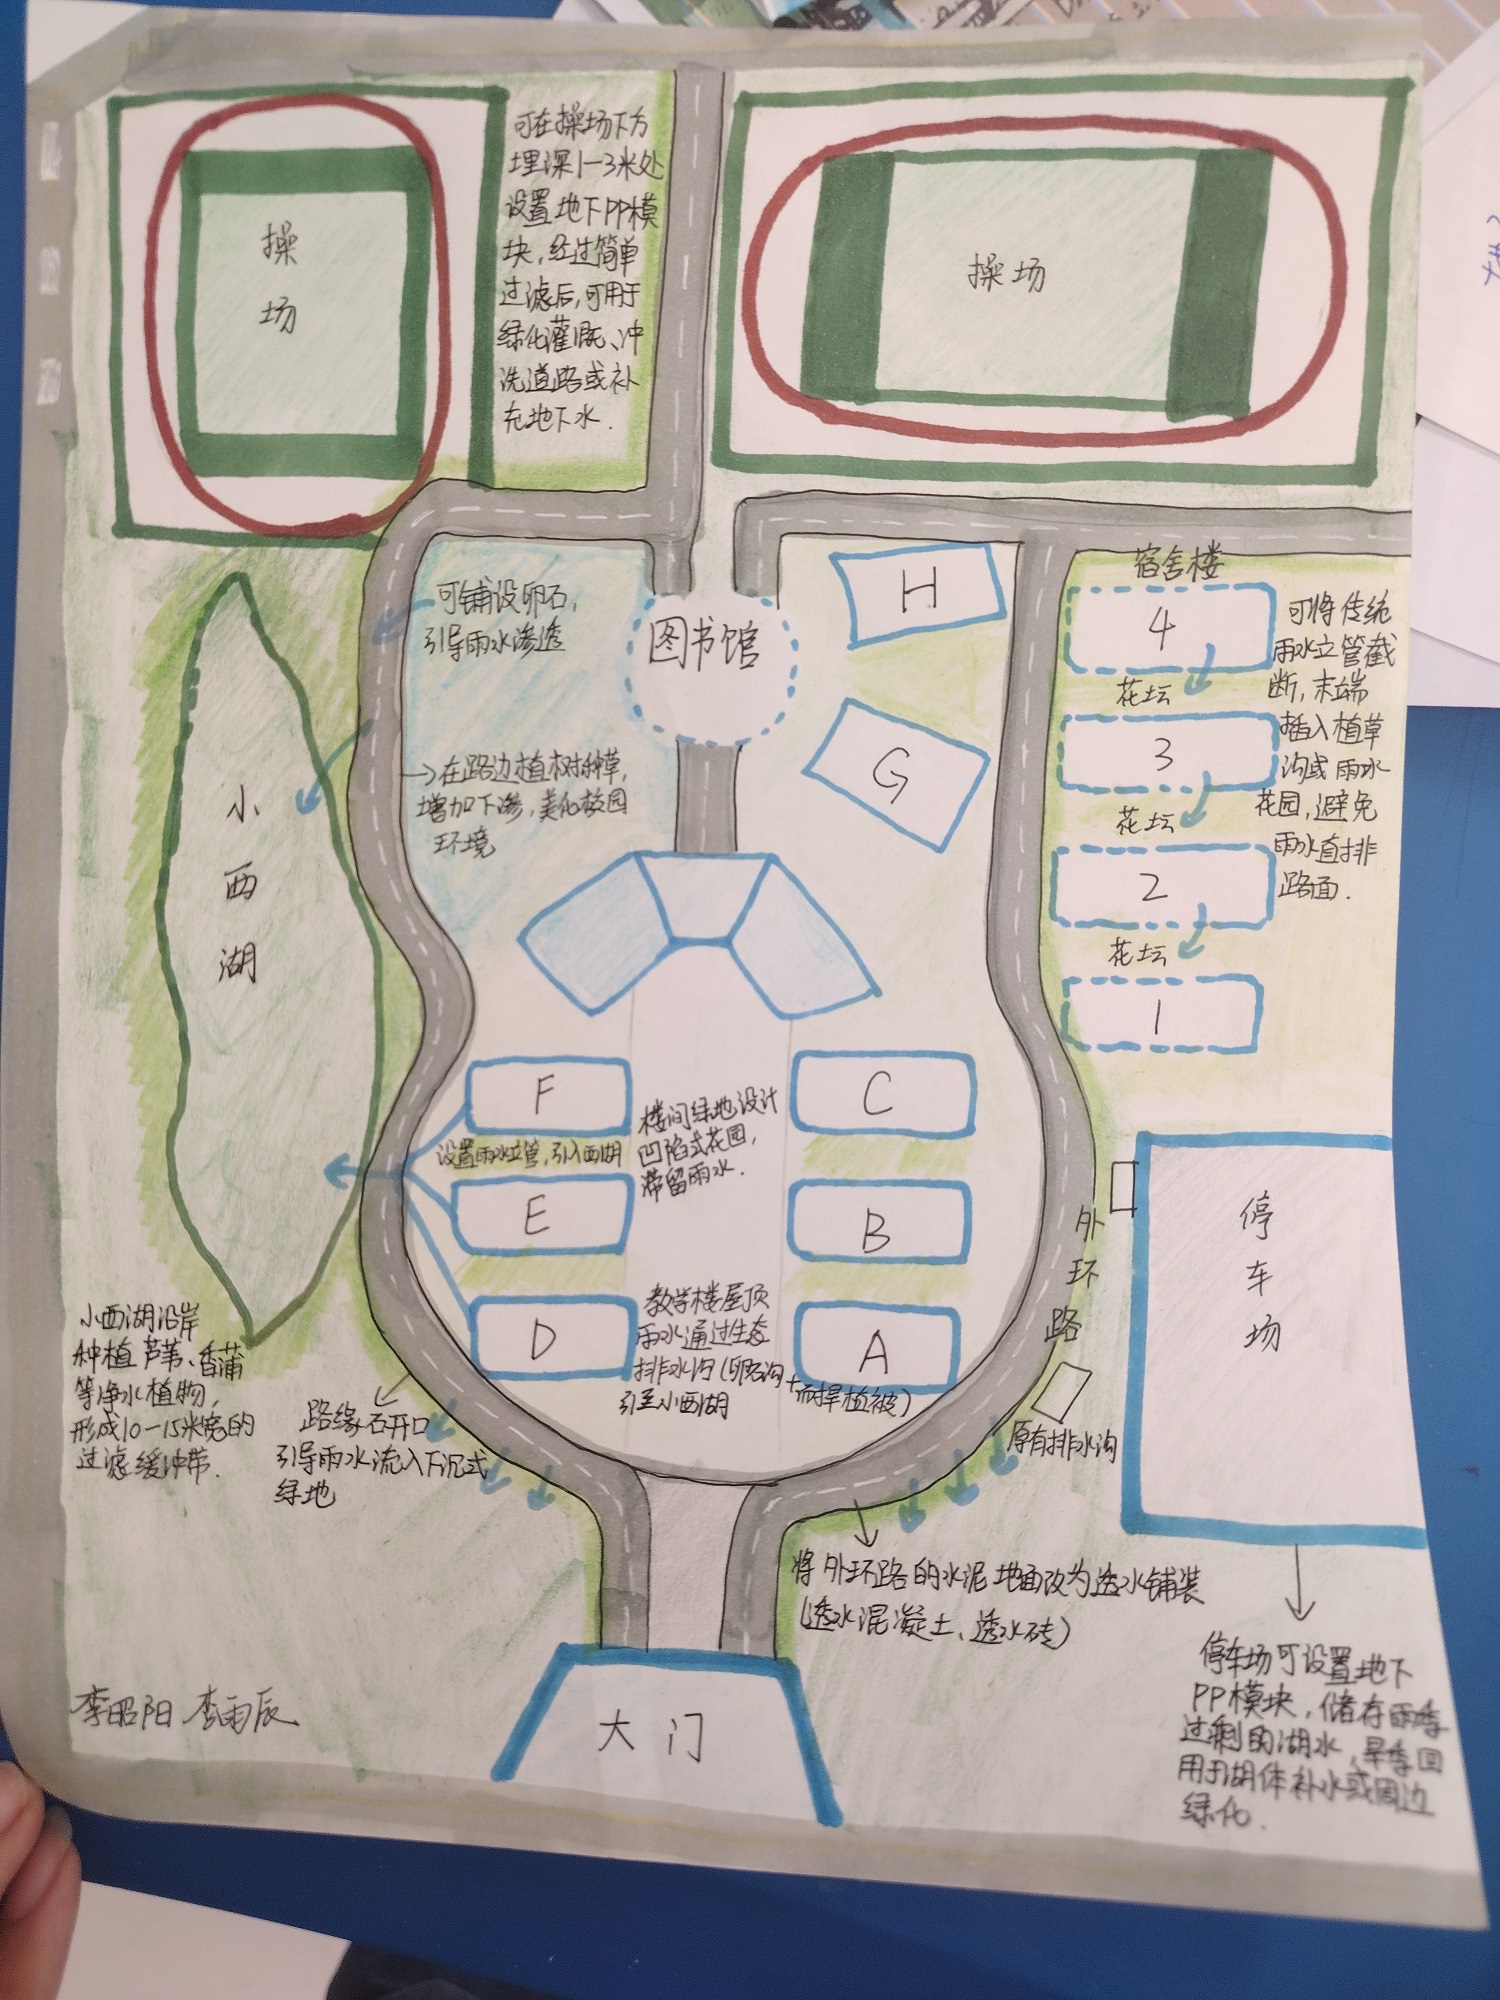 操
场
可在操场下方
埋深1-3米处
设置地下PP模
块,经过简单
过滤后,可用于
绿化灌溉、冲
洗道路或补
充地下水.
操场
可铺设卵石,
引导雨水渗透
图书馆
H
宿舍楼
4
花坛
3
花坛
2
花坛
1
可将传统
雨水立管截
断,末端
插入植草
沟或雨水
花园,避免
雨水直排
路面.
在路边植树种草,
增加下渗,美化校园
环境
G
小
西
湖
F
C
设置雨水立管,引入西湖
楼间绿地设计
凹陷式花园,
滞留雨水.
E
B
D
A
教学楼屋顶
雨水通过生态
排水沟(卵石沟+耐旱植被)
引至小西湖
外
环
路
停
车
场
原有排水沟
小西湖沿岸
种植芦苇、香蒲
等净水植物,
形成10-15米宽的
过滤缓冲带.
路缘石开口
引导雨水流入下沉式
绿地
将外环路的水泥地面改为透水铺装
(透水混凝土、透水砖)
停车场可设置地下
PP模块,储存雨季
过剩的湖水,旱季回
用于湖体补水或周边
绿化.
李昭阳 李雨辰
大门